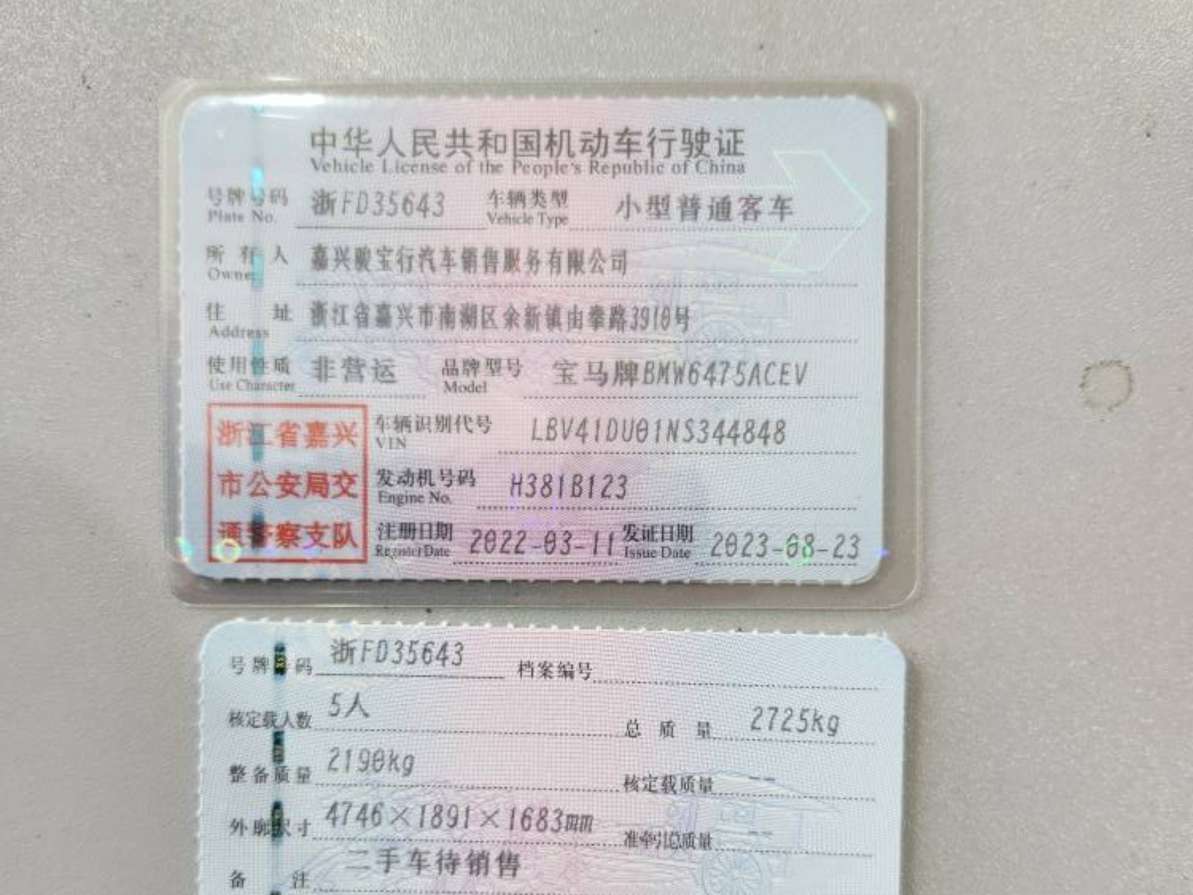 中华人民共和国机动车行驶证
Vehicle License of the People's Republic of China
号牌号码 浙FD35643 车辆类型 小型普通客车
Plate No. Vehicle Type
所有人 嘉兴骏宝行汽车销售服务有限公司
Owner
住址 浙江省嘉兴市南湖区余新镇由拳路3910号
Address
使用性质 非营运 品牌型号 宝马牌BMW6475ACEV
Use Character Model
浙江省嘉兴
市公安局交
通警察支队
车辆识别代号 LBV41DU01NS344848
VIN
发动机号码 H381B123
Engine No.
注册日期 2022-03-11 发证日期 2023-08-23
Register Date Issue Date
号牌号码 浙FD35643 档案编号
核定载人数 5人 总质量 2725kg
整备质量 2190kg 核定载质量 --
外廓尺寸 4746×1891×1683mm 准牵引总质量 --
备注 二手车待销售